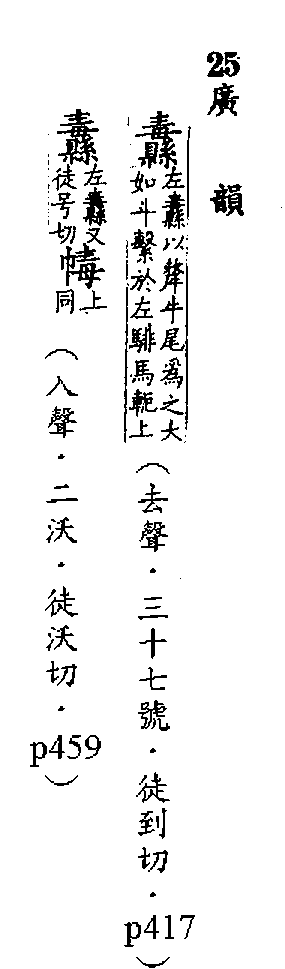 25廣 韻
纛左纛以犛牛尾爲之大如斗繫於左騑馬軛上（去聲．三十七號．徒到切．p417）
纛左纛又徒号切 上同（入聲．二沃．徒沃切．p459）